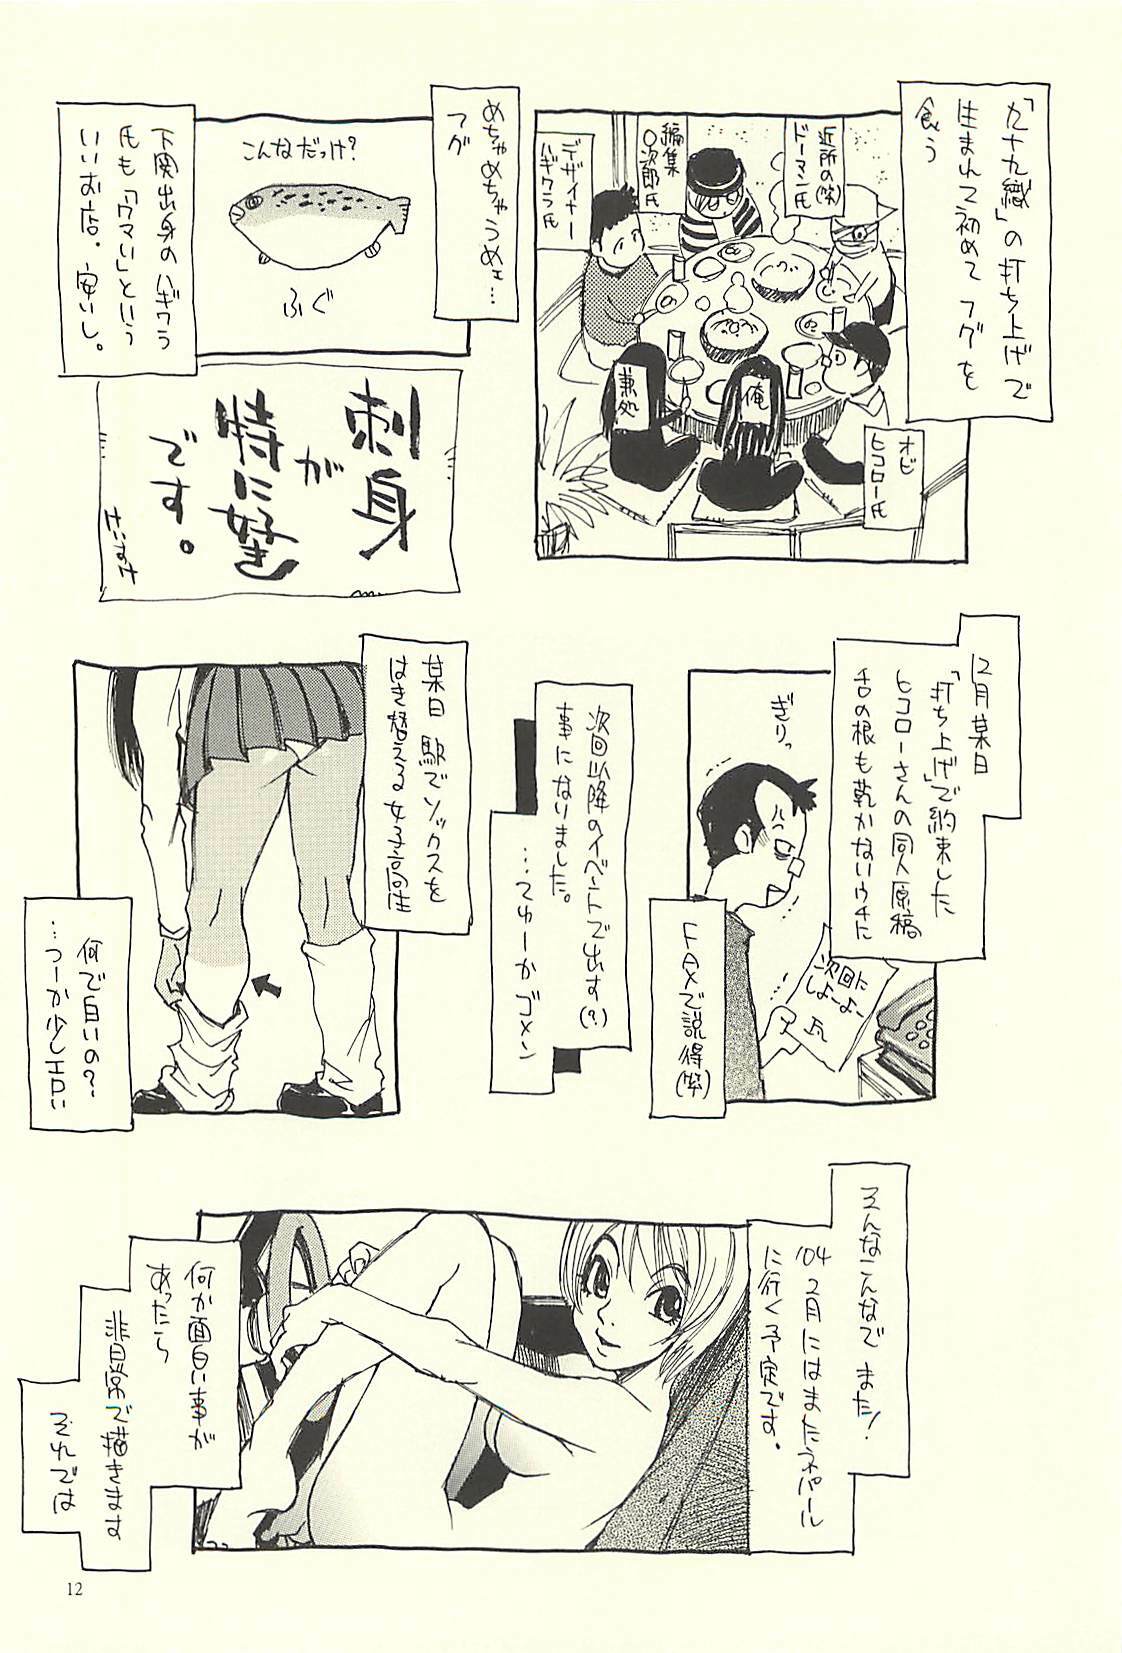 「九十九織」の打ち上げで
生まれて初めてフグを
食う
近所の(笑)
ドーマン氏
編集
〇次郎氏
デザイナー
ハギワラ氏
兼処
俺
オビ
ヒコロー氏
めちゃめちゃうめェ…
フグ
こんなだっけ?
ふぐ
下関出身のハギワラ
氏も「ウマい」という
いいお店。安いし。
刺身
が
特に好き
です。
けいすけ
12月某日
「打ち上げ」で約束した
ヒコローさんの同人原稿
舌の根も乾かないウチに
ぎりっ
次回に
しよーよー
FAXで説得(笑)
次回以降のイベントで出す(?)
事になりました。
…てゆーかゴメン
某日 駅でソックスを
はき替える女子高生
何で白いの?
…つーか少しエロい
そんなこんなで また!
'04 2月にはまたネパール
に行く予定です。
何か面白い事が
あったら
非日常で描きます
それでは
12